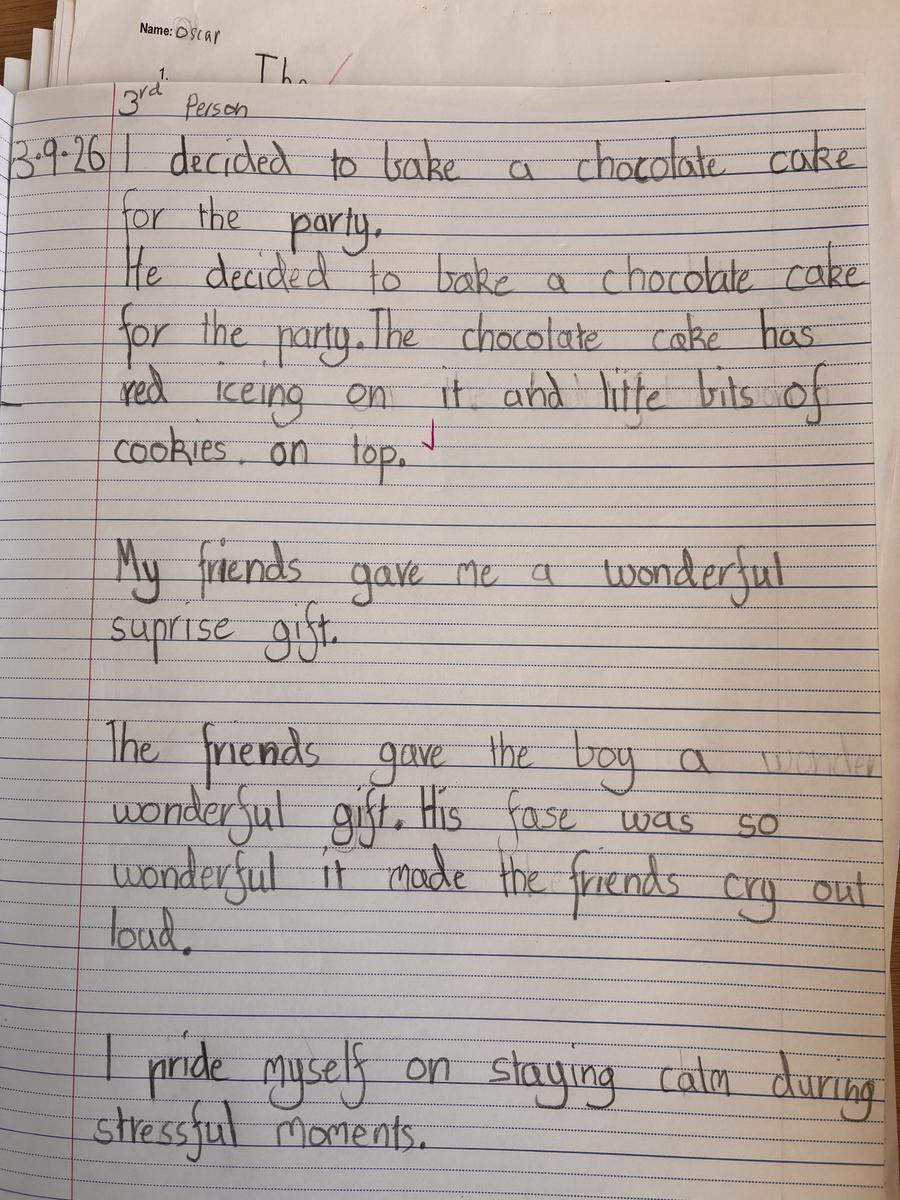 Name: Oscar
1. The
3rd Person
3.9.26 I decided to bake a chocolate cake
for the party.
He decided to bake a chocolate cake
for the party. The chocolate cake has
red iceing on it and little bits of
cookies. on top.
My friends gave me a wonderful
suprise gift.
The friends gave the boy a wonder
wonderful gift. His fase was so
wonderful it made the friends cry out
loud.
I pride myself on staying calm during
stressful moments.